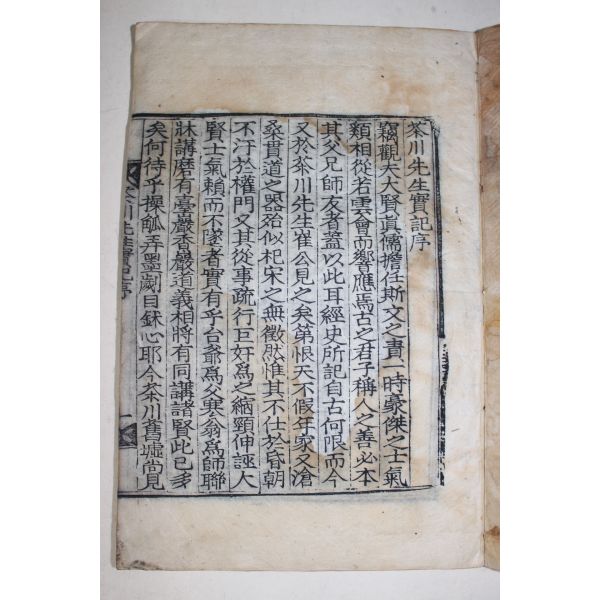 茶川先生實記序
竊觀夫大賢眞儒擔任斯文之責一時豪傑之士氣
類相從若雲會而響應焉古之君子稱人之善必本
其父兄師友者蓋以此耳經史所記自古何限而今
又於茶川先生崔公見之矣第恨天不假年家又滄
桑貫道之器殆似杞宋之無徵然惟其不仕於昏朝
不汙於權門又其從事疏行巨奸爲之縮頸伸誣人
賢士氣賴而不墜者實有乎台爺爲父寒翁爲師聯
牀講磨有臺巖香巖道義相將有同講諸賢此已多
矣何待乎操觚弄墨劌目鉥心耶今茶川舊墟尙見
茶川先生實記序
一